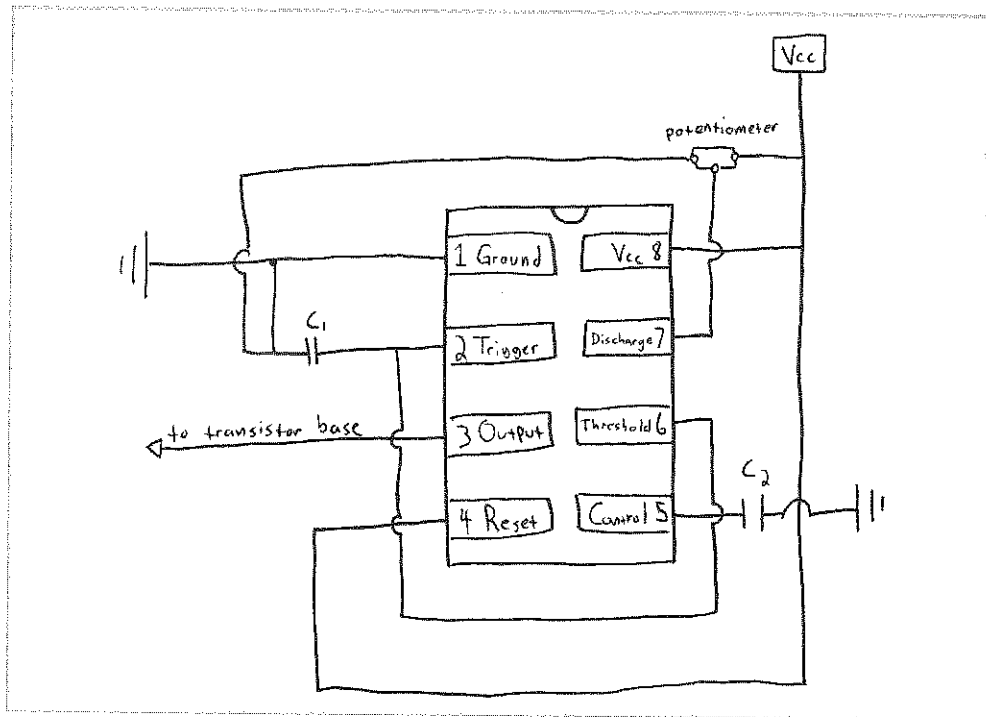 Vcc
potentiometer
1 Ground
Vcc 8
C1
2 Trigger
Discharge 7
to transistor base
3 Output
Threshold 6
C2
4 Reset
Control 5